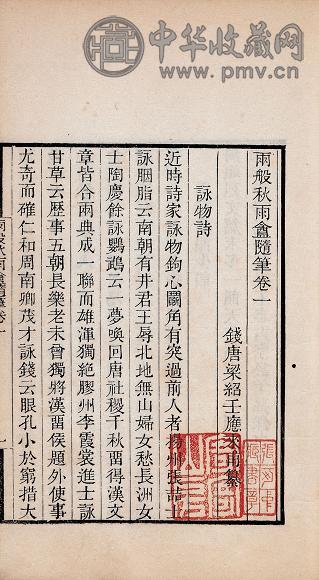 中华收藏网
www.pmv.cn
兩般秋雨盦隨筆卷一
錢唐梁紹壬應來甫纂
詠物詩
近時詩家詠物鉤心鬬角有突過前人者揚州張喆士
詠胭脂云南朝有井君王辱北地無山婦女愁長洲女
士陶慶餘詠鸚鵡云一夢喚回唐社稷千秋畱得漢文
章皆合兩典成一聯而雄渾獨絶膠州李霞裳進士詠
甘草云歴事五朝長樂老未曾獨將漢畱侯題外使事
尤奇而確仁和周南卿茂才詠錢云眼孔小於窮措大